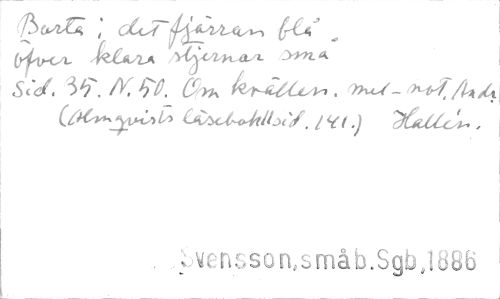 Borta i det fjärran blå
öfver klara stjernor små
Sid. 35. N. 50. Om kvällen. mel-not. Andr.
(Almqvists läsebok II sid. 141.) Hallén.
Svensson, småb. Sgb, 1886